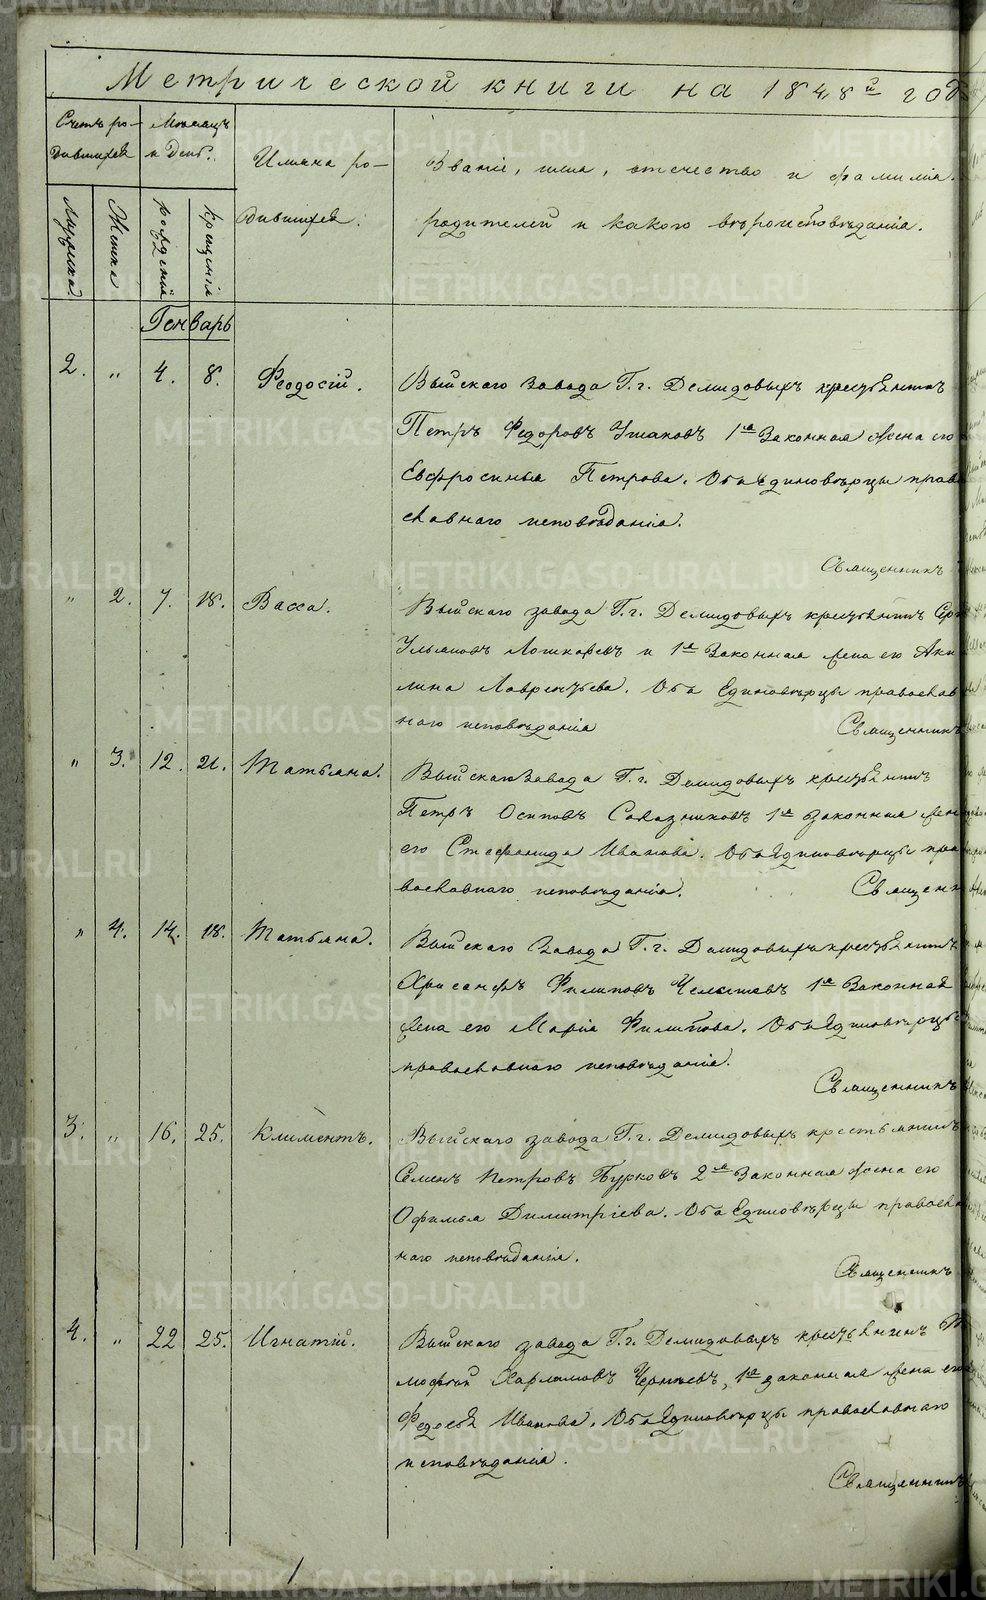 Метрической книги на 1848й год
Счетъ ро-
дившихся
Мѣсяцъ
и день.
Имяна ро-
дившихся.
Званіе, имя, отечество и фамилія
родителей и какого вѣроисповѣданія.
Мужеска.
Женска
рожденія
крещенія
Генварь
2. " 4. 8. Феодосій. Выйскаго завода Г.г. Демидовыхъ крестьянинъ
Петръ Федоровъ Ушаковъ 1я Законная жена его
Евфросинья Петрова. Оба Единовѣрцы право
славнаго исповѣданія.
Священникъ
" 2. 7. 18. Васса. Выйскаго завода Г.г. Демидовыхъ крестьянинъ
Ульяновъ Лошкаревъ и 1я Законная жена его Аки
лина Лаврентьева. Оба Единовѣрцы православ
наго исповѣданія Священникъ
" 3. 12. 21. Татьяна. Выйскаго завода Г.г. Демидовыхъ крестьянинъ
Петръ Осиповъ 1я законная жен
его Стефанида Иванова. Оба Единовѣрцы пра
вославнаго исповѣданія. Священн
" 4. 14. 18. Татьяна. Выйскаго Завода Г.г. Демидовыхъ крестьянинъ
Хрисанфъ Филиповъ Челышевъ 1я Законная
жена его Марія Филипова. Оба Единовѣрцы
православнаго исповѣданія.
Священникъ
3. " 16. 25. Климентъ. Выйскаго завода Г.г. Демидовыхъ крестьянинъ
Семенъ Петровъ Бурковъ 2я Законная жена его
Офимья Димитріева. Оба Единовѣрцы православ
наго исповѣданія.
Священникъ
4. " 22 25. Игнатій. Выйскаго завода Г.г. Демидовыхъ крестьянинъ Ти
мофей Харламовъ 1я законная жена его
Федосья Иванова. Оба Единовѣрцы православнаго
исповѣданія.
Священникъ
METRIKI.GASO-URAL.RU